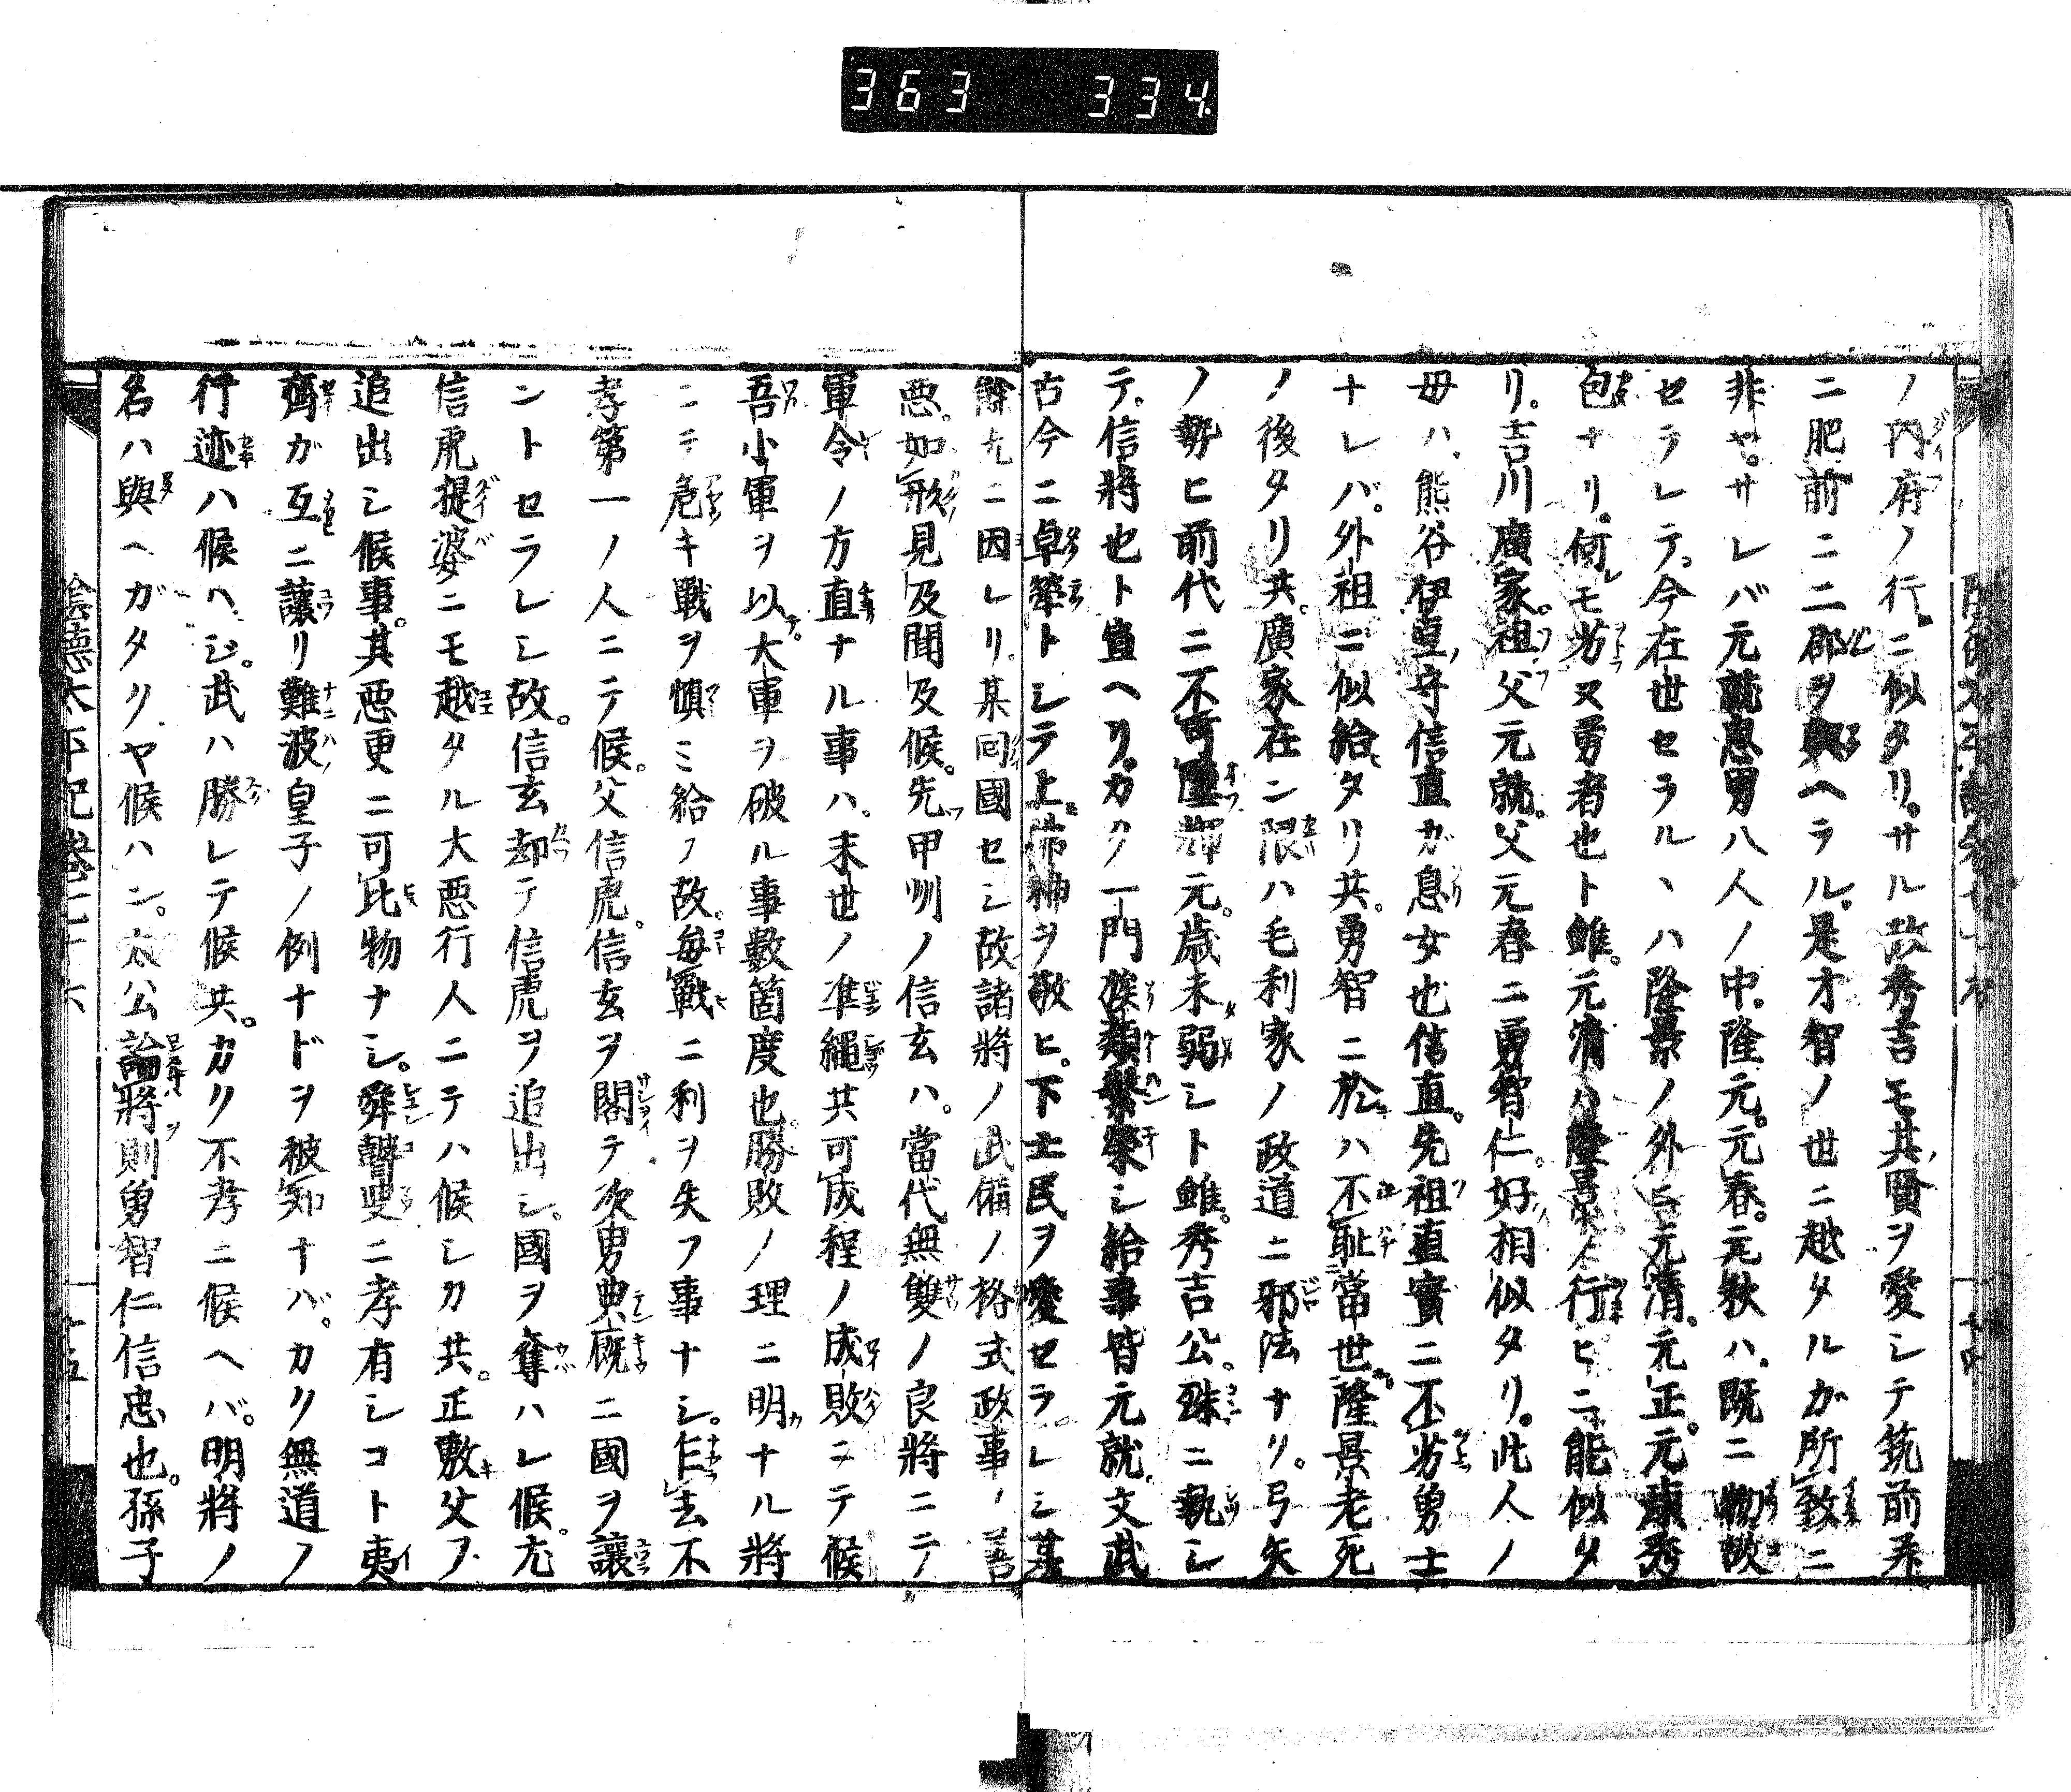 363 334
ノ内府ノ行ニ似タリ。サル故秀吉モ其賢ヲ愛シテ筑前并
ニ肥前ニ二郡ヲ與ヘラル。是才智ノ世ニ越タルガ所致ニ
非ヤ。サレバ元就息男八人ノ中。隆元。元春。元秋ハ。既ニ物故
セラレテ。今在世セラルヽハ隆景ノ外ニ元清。元正。元康秀
包ナリ。何モ劣ヌ勇者也ト雖。元清ハ隆景ノ行ヒニ能似タ
リ。吉川廣家。祖父元就。父元春ニ勇智仁。好相似タリ。此人ノ
母ハ。熊谷伊豆守信直ガ息女也信直。先祖直實ニ不劣勇士
ナレバ。外祖ニ似給タリ共。勇智ニ於ハ不恥當世。隆景老死
ノ後タリ共。廣家在ン限ハ毛利家ノ政道ニ邪法ナリ。弓矢
ノ勢ヒ前代ニ不可墜輝元。歳未弱シト雖。秀吉公。殊ニ執シ
テ。信將也ト宣ヘリ。カク一門族類繁榮シ給事皆元就。文武
古今ニ卓犖トシテ上佛神ヲ敬ヒ。下士民ヲ愛セラレシ其
餘光ニ因レリ。某同國セシ故諸將ノ武備ノ格式政事ノ善
惡。如形見及聞及候。先甲州ノ信玄ハ。當代無雙ノ良將ニテ
軍令ノ方直ナル事ハ。末世ノ準繩共可成程ノ成敗ニテ候
吾小軍ヲ以。大軍ヲ破ル事數箇度也。勝敗ノ理ニ明ナル將
ニテ危キ戰ヲ慎ミ給フ故。毎戰ニ利ヲ失フ事ナシ。乍去不
孝第一ノ人ニテ候。父信虎。信玄ヲ閣テ。次男典厩ニ國ヲ讓
ントセラレシ故。信玄却テ信虎ヲ追出シ。國ヲ奪ハレ候。尤
信虎提婆ニモ越タル大惡行人ニテハ候シカ共。正敷父ヲ
追出シ候事。其惡更ニ可比物ナシ。舜瞽叟ニ孝有シコト夷
齊ガ互ニ讓リ難波皇子ノ例ナドヲ被知ナバ。カク無道ノ
行迹ハ候ハジ。武ハ勝レテ候共。カク不孝ニ候ヘバ。明將ノ
名ハ與ヘガタクヤ候ハン。太公論將則勇智仁信忠也。孫子
陰徳太平記卷七十六